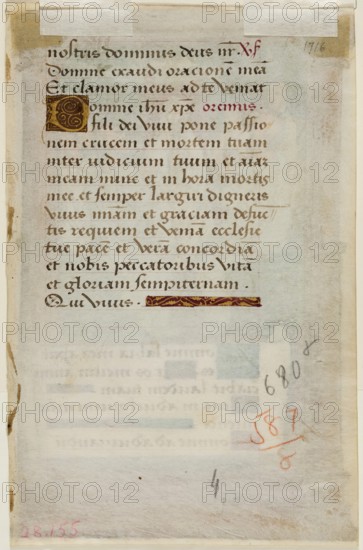 nostris dominus deus nr̄ . V̸f
Domine exaudi oracionē meā
Et clamor meus ad te veniat
Domine ihū xp̄e oremus .
fili dei vivi pone passio
nem crucem et mortem tuam
inter iudicium tuum et aīaz
meam nunc et in hora mortis
mee et semper largiri digneris
vivis mīam et graciam defūc
tis requiem et veniā ecclesie
tue pacē et verā concordiā
et nobis peccatoribus vitā
et gloriam sempiternam .
Qui vivis .
680
587
8
4
28.155
PHOTO 12